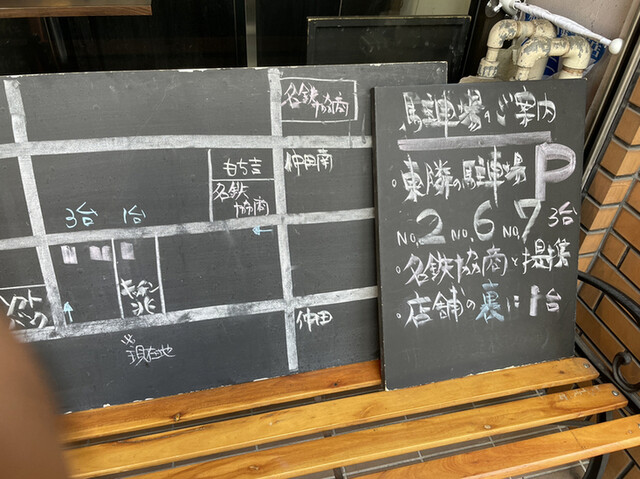 名鉄協商
もち吉
名鉄
協商
仲田南
3台
1台
キッチン
兆
ソフト
バンク
仲田
現在地
駐車場のご案内
・東隣の駐車場 P
No.2 No.6 No.7 3台
・名鉄協商と提携
・店舗の裏に1台